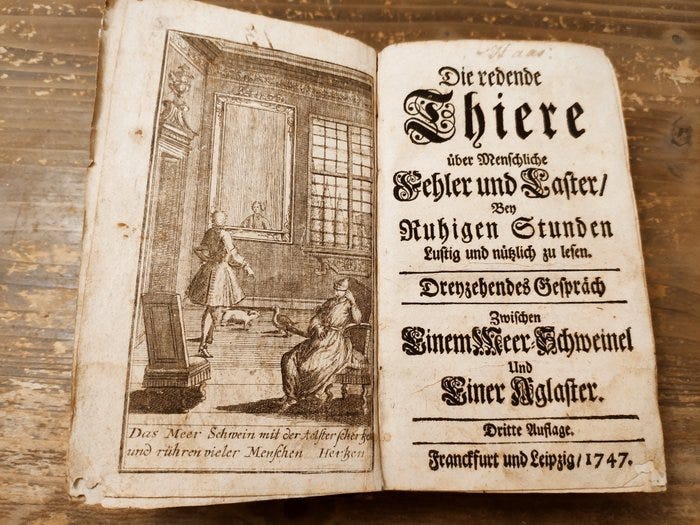 Das Meer Schwein mit der Aelster scherken
und rühren vieler Menschen Herken
Haas.
Die redende
Thiere
über Menschliche
Fehler und Laster/
Bey
Ruhigen Stunden
Lustig und nützlich zu lesen.
Dreyzehendes Gespräch
Zwischen
Einem Meer-Schweinel
Und
Einer Aglaster.
Dritte Auflage.
Franckfurt und Leipzig/1747.